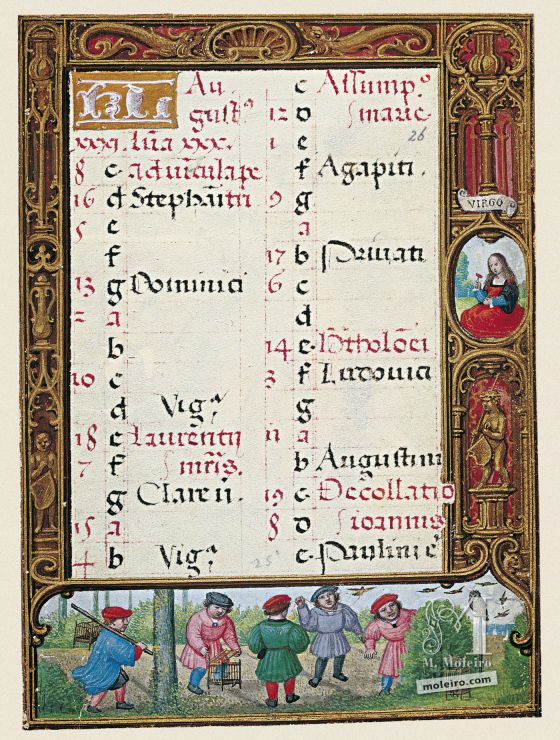 Au
gustꝰ
xxxi. Lūa xxx.
8 c ad vīcula pe
16 d Stephani
5 e
f
13 g Dominici
2 a
b
10 c
d Vigᵃ
18 e Laurentij
7 f mr̄is.
g Clare v.
15 a
4 b Vigᵃ
25
c Assumpᵒ
12 d marie
26
1 e
f Agapiti.
9 g
a
17 b Privati
6 c
d
14 e Btholōei
3 f Ludovici
g
11 a
b Augustini
19 c Decollatio
8 d ioannis
e Paulini ē
VIRGO
M
M. Moleiro
moleiro.com